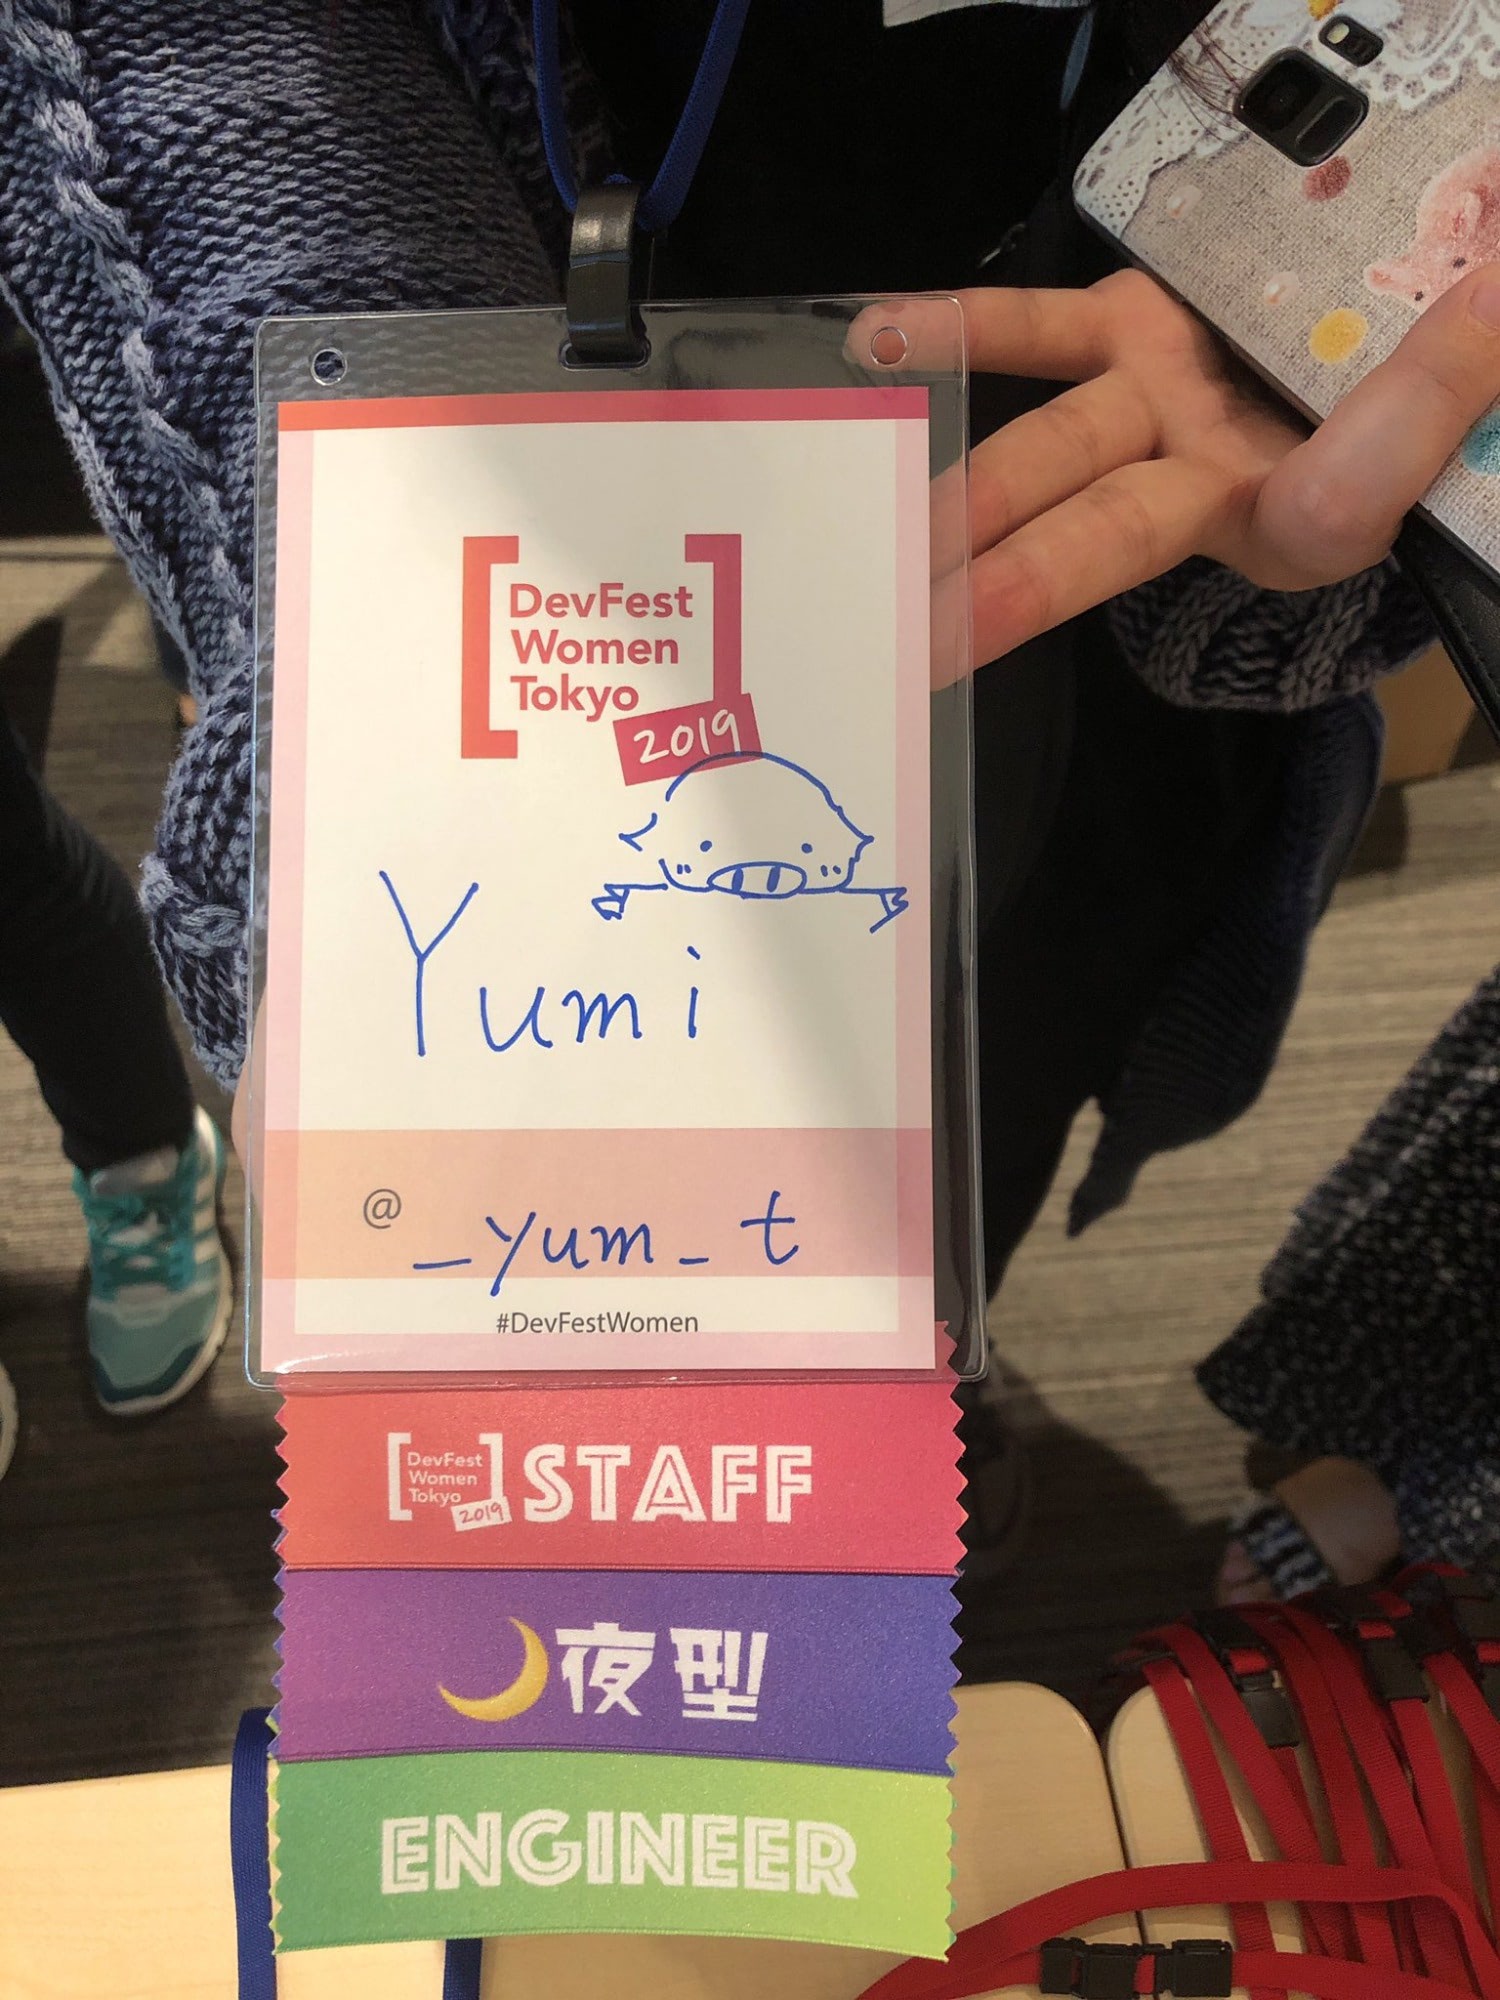 DevFest
Women
Tokyo
2019
Yumi
@_yum_t
#DevFestWomen
DevFest
Women
Tokyo
2019
STAFF
夜型
ENGINEER